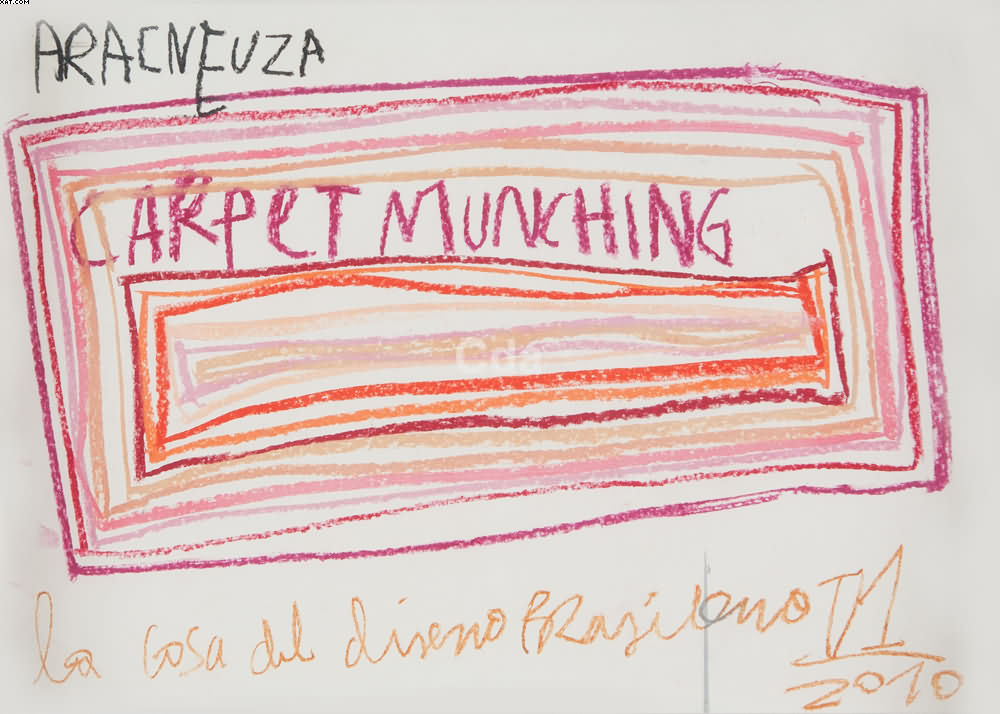 XAT.COM
ARACNEUZA
CARPET MUNCHING
Cda
la cosa del diseno BRazileno TM
2010